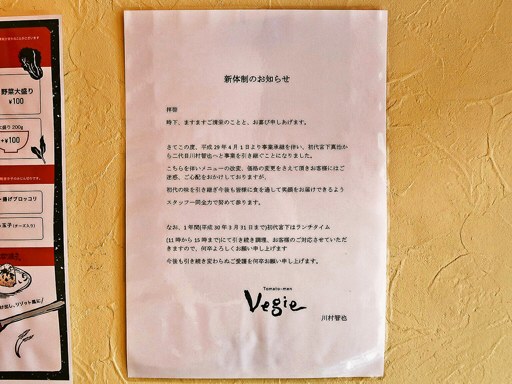 新体制のお知らせ
拝啓
時下、ますますご清栄のことと、お喜び申しあげます。
さてこの度、平成29年4月1日より事業承継を伴い、初代宮下真也から
二代目川村智也へと事業を引き継ぐことになりました。
こちらを伴いメニューの改変、価格の変更をさえて頂きお客様にはご迷
惑、ご心配をおかけしておりますが、
初代の味を引き継ぎ今後も皆様に食を通して笑顔をお届けできるよう
スタッフ一同全力で努めて参ります。
なお、1年間(平成30年3月31日まで)初代宮下はランチタイム
(11時から15時まで)にて引き続き調理、お客様のご対応させていただ
きますので、何卒よろしくお願い申し上げます
今後も引き続き変わらぬご愛護を何卒お願い申し上げます。
Tomato-men
Vegie
川村智也
野菜大盛り
¥100
大盛り 200g
+¥100
揚げブロッコリ
玉子(チーズ入り)